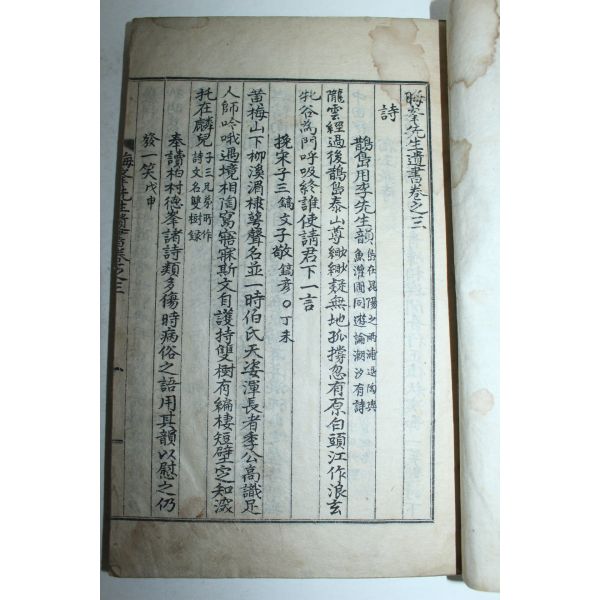 晦峯先生遺書卷之三
詩
鵲島用李先生韻 島在昆陽之兩浦退陶與
魚灌圃同遊論潮汐有詩
隴雲經過後鵲島泰山尊緲緲疑無地孤撐忽有原白頭江作浪玄
牝谷爲門呼吸終誰使請君下一言
挽宋子三鎬文子敬鎬彦○丁未
黃梅山下柳溪湄棣萼聲名並一時伯氏天姿渾長者季公高識足
人師吟哦過境相陶寫寤寐斯文自護持雙樹有編棲短壁定知深
托在麟兒 子三兄弟所作
詩文名雙樹錄
奉讀柏村德峯諸詩類多傷時病俗之語用其韻以慰之仍
發一笑 戊申
晦峯先生遺書卷之三